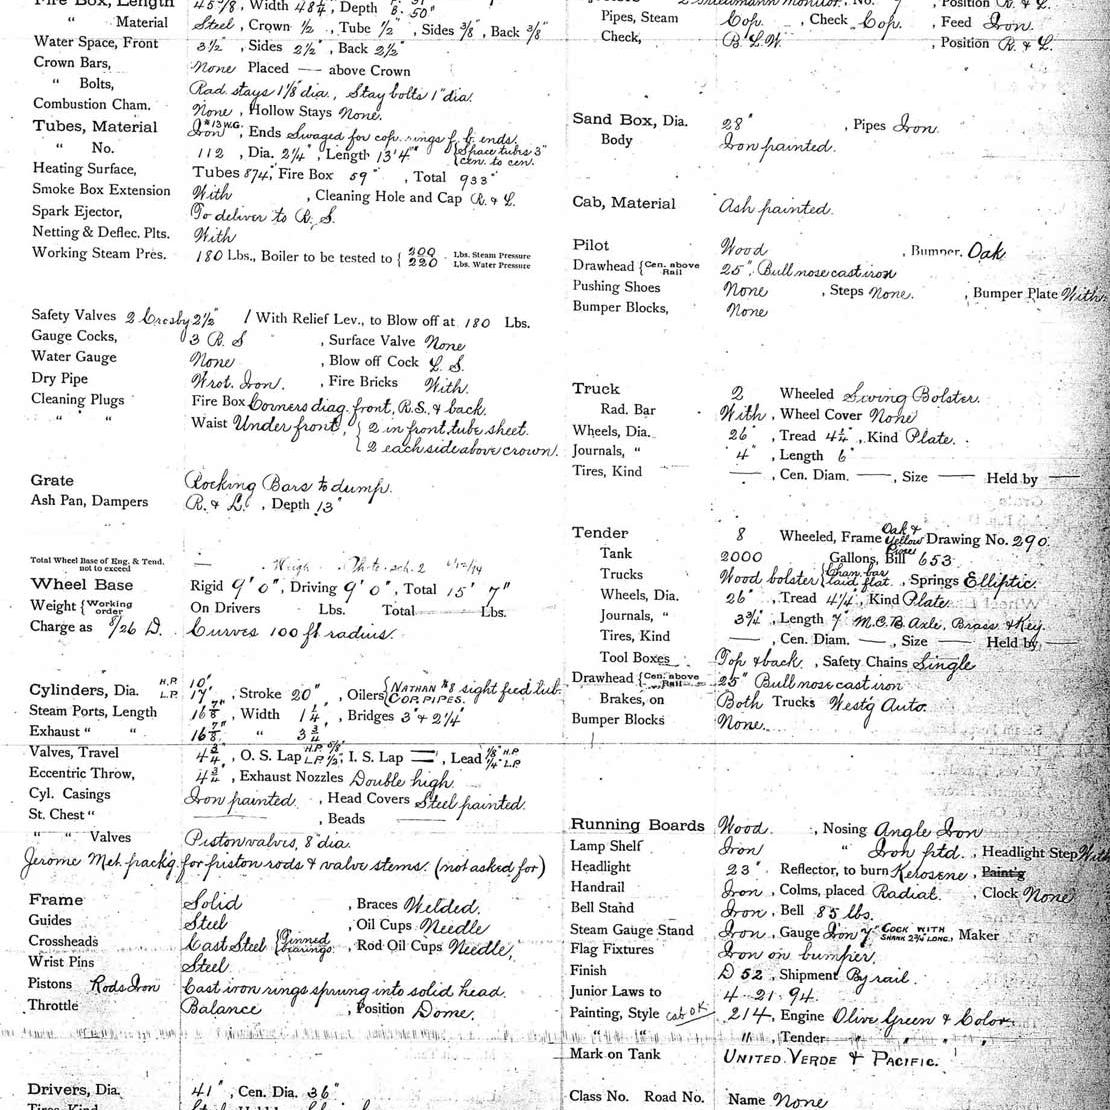 Fire Box, Length 45 5/8, Width 48 1/4, Depth B. 50"
" Material Steel, Crown 1/2, Tube 1/2", Sides 3/8", Back 3/8"
Water Space, Front 3 1/2", Sides 2 1/2", Back 2 1/2"
Crown Bars, None Placed — above Crown
" Bolts, Rad. stays 1 1/8" dia., Stay bolts 1" dia.
Combustion Cham. None, Hollow Stays None.
Tubes, Material Iron #13 W.G., Ends Swaged for cop. rings f. & b. ends.
" No. 112, Dia. 2 1/4", Length 13' 4" {Space tubes 3" cen. to cen.
Heating Surface, Tubes 874, Fire Box 59", Total 933"
Smoke Box Extension With, Cleaning Hole and Cap R. & L.
Spark Ejector, To deliver to R. S.
Netting & Deflec. Plts. With
Working Steam Pres. 180 Lbs., Boiler to be tested to { 200 Lbs. Steam Pressure
220 Lbs. Water Pressure
Safety Valves 2 Crosby 2 1/2" 1 With Relief Lev., to Blow off at 180 Lbs.
Gauge Cocks, 3 R. S, Surface Valve None
Water Gauge None, Blow off Cock L. S.
Dry Pipe Wrot. Iron., Fire Bricks With.
Cleaning Plugs Fire Box Corners diag. front, R.S. & back.
" " Waist Under front, { 2 in front tube sheet.
{ 2 each side above crown.
Grate Rocking Bars to dump.
Ash Pan, Dampers R. & L., Depth 13"
Total Wheel Base of Eng. & Tend. not to exceed —
Wheel Base Rigid 9' 0", Driving 9' 0", Total 15' 7"
Weight {Working order On Drivers Lbs. Total Lbs.
Charge as 8/26 D. Curves 100 ft radius.
Cylinders, Dia. H.P. 10" L.P. 17", Stroke 20", Oilers {NATHAN #8 sight feed lub. COP. PIPES.
Steam Ports, Length 16 7/8", Width 1 1/4, Bridges 3" & 2 1/4"
Exhaust " " 16 7/8", " 3 3/4
Valves, Travel 4 3/4", O. S. Lap H.P. 5/8" L.P. 1/2", I. S. Lap —, Lead 1/8" H.P 1/4" L.P.
Eccentric Throw, 4 3/4", Exhaust Nozzles Double high.
Cyl. Casings Iron painted., Head Covers Steel painted.
St. Chest " —, Beads —
" " Valves Piston valves, 8" dia.
Jerome Met. pack'g. for piston rods & valve stems. (not asked for)
Frame Solid, Braces Welded.
Guides Steel, Oil Cups Needle
Crossheads Cast Steel {Tinned bearings., Rod Oil Cups Needle,
Wrist Pins Steel.
Pistons Rods Iron Cast iron rings sprung into solid head.
Throttle Balance, Position Dome.
Drivers, Dia. 41", Cen. Dia. 36"
No. , Position R. & L.
Pipes, Steam Cop., Check Cop., Feed Iron.
Check, B. L. W., Position R. & L.
Sand Box, Dia. 28", Pipes Iron.
Body Iron painted.
Cab, Material Ash painted.
Pilot Wood, Bumper, Oak
Drawhead {Cen. above Rail 25". Bull nose cast iron
Pushing Shoes None, Steps None., Bumper Plate With
Bumper Blocks, None
Truck 2 Wheeled Swing Bolster.
Rad. Bar With, Wheel Cover None
Wheels, Dia. 26", Tread 4 1/4", Kind Plate.
Journals, " 4", Length 6"
Tires, Kind —, Cen. Diam. —, Size — Held by —
Tender 8 Wheeled, Frame Oak & Yellow Pine Drawing No. 290.
Tank 2000 Gallons, Bill 653
Trucks Wood bolster {Chan. bar laid flat., Springs Elliptic.
Wheels, Dia. 26", Tread 4 1/4", Kind Plate.
Journals, " 3 3/4", Length 7" M.C.B. Axle, Brass & Key.
Tires, Kind —, Cen. Diam. —, Size — Held by —
Tool Boxes Top & back., Safety Chains Single
Drawhead {Cen. above Rail 25" Bull nose cast iron
Brakes, on Both Trucks Westg Auto.
Bumper Blocks None.
Running Boards Wood., Nosing Angle Iron
Lamp Shelf Iron " Iron ptd., Headlight Step With
Headlight 23" Reflector, to burn Kerosene, Paint'g
Handrail Iron, Colms, placed Radial., Clock None
Bell Stand Iron, Bell 85 lbs.
Steam Gauge Stand Iron, Gauge Iron 7" COCK WITH SHANK 2 3/4" LONG.} Maker
Flag Fixtures Iron on bumper.
Finish D 52, Shipment By rail.
Junior Laws to 4. 21. 94.
Painting, Style cab ok 214, Engine Olive Green & Color.
" " ", Tender " " "
Mark on Tank UNITED. VERDE & PACIFIC.
Class No. Road No. Name None